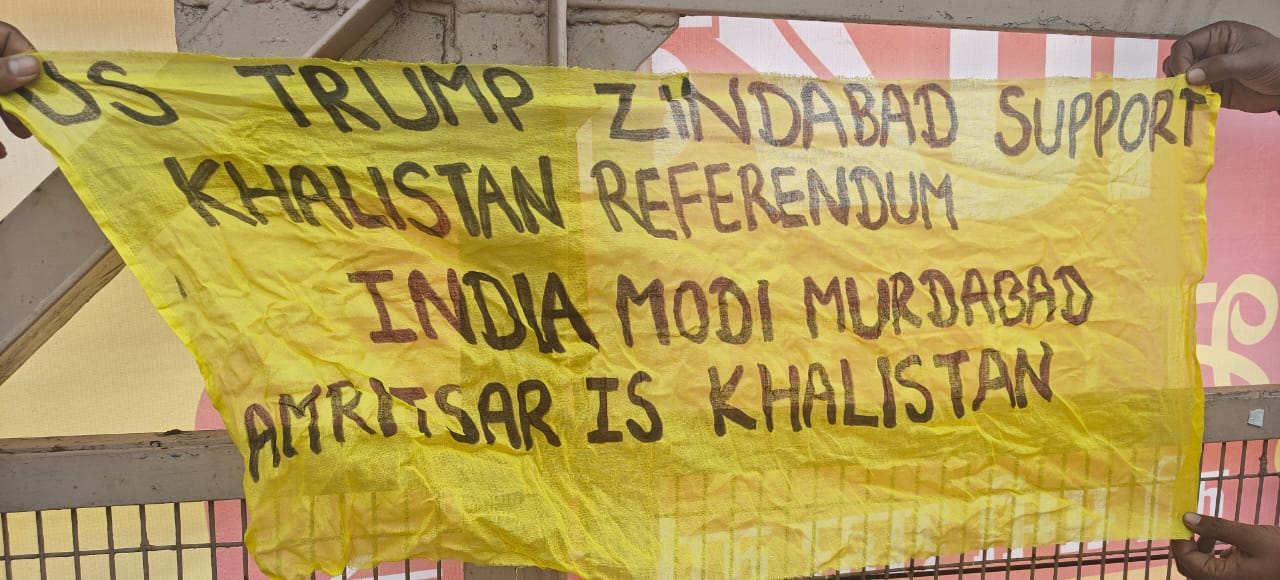 US TRUMP ZINDABAD SUPPORT
KHALISTAN REFERENDUM
INDIA MODI MURDABAD
AMRITSAR IS KHALISTAN